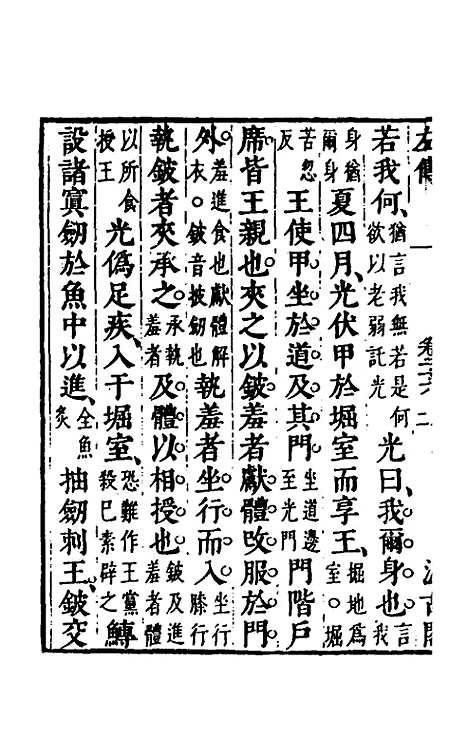 左傳 一 卷二六 二 汲古閣
若我何、猶言我無若是何欲以老弱託光光曰、我爾身也言我
身猶爾身夏四月、光伏甲於堀室而享王、掘地為室○堀
苦忽反王使甲坐於道及其門坐道邊至光門門階戶
席皆王親也夾之以鈹羞者獻體改服於門
外羞進食也獻體解衣○鈹音披劒也執羞者坐行而入坐行膝行
執鈹者夾承之承執羞者及體以相授也鈹及進羞者體
以所食授王光偽足疾、入于堀室、恐難作王黨殺己素辟之鱄
設諸寘劒於魚中以進、全魚炙抽劒刺王、鈹交